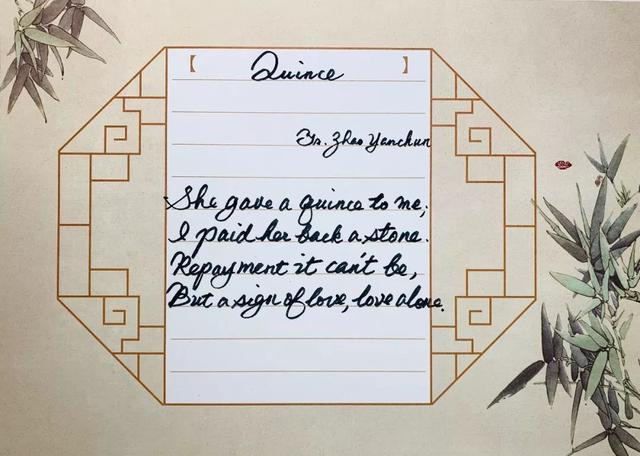 【 Quince 】
Tr. Zhao Yanchun
She gave a quince to me;
I paid her back a stone.
Repayment it can't be,
But a sign of love, love alone.